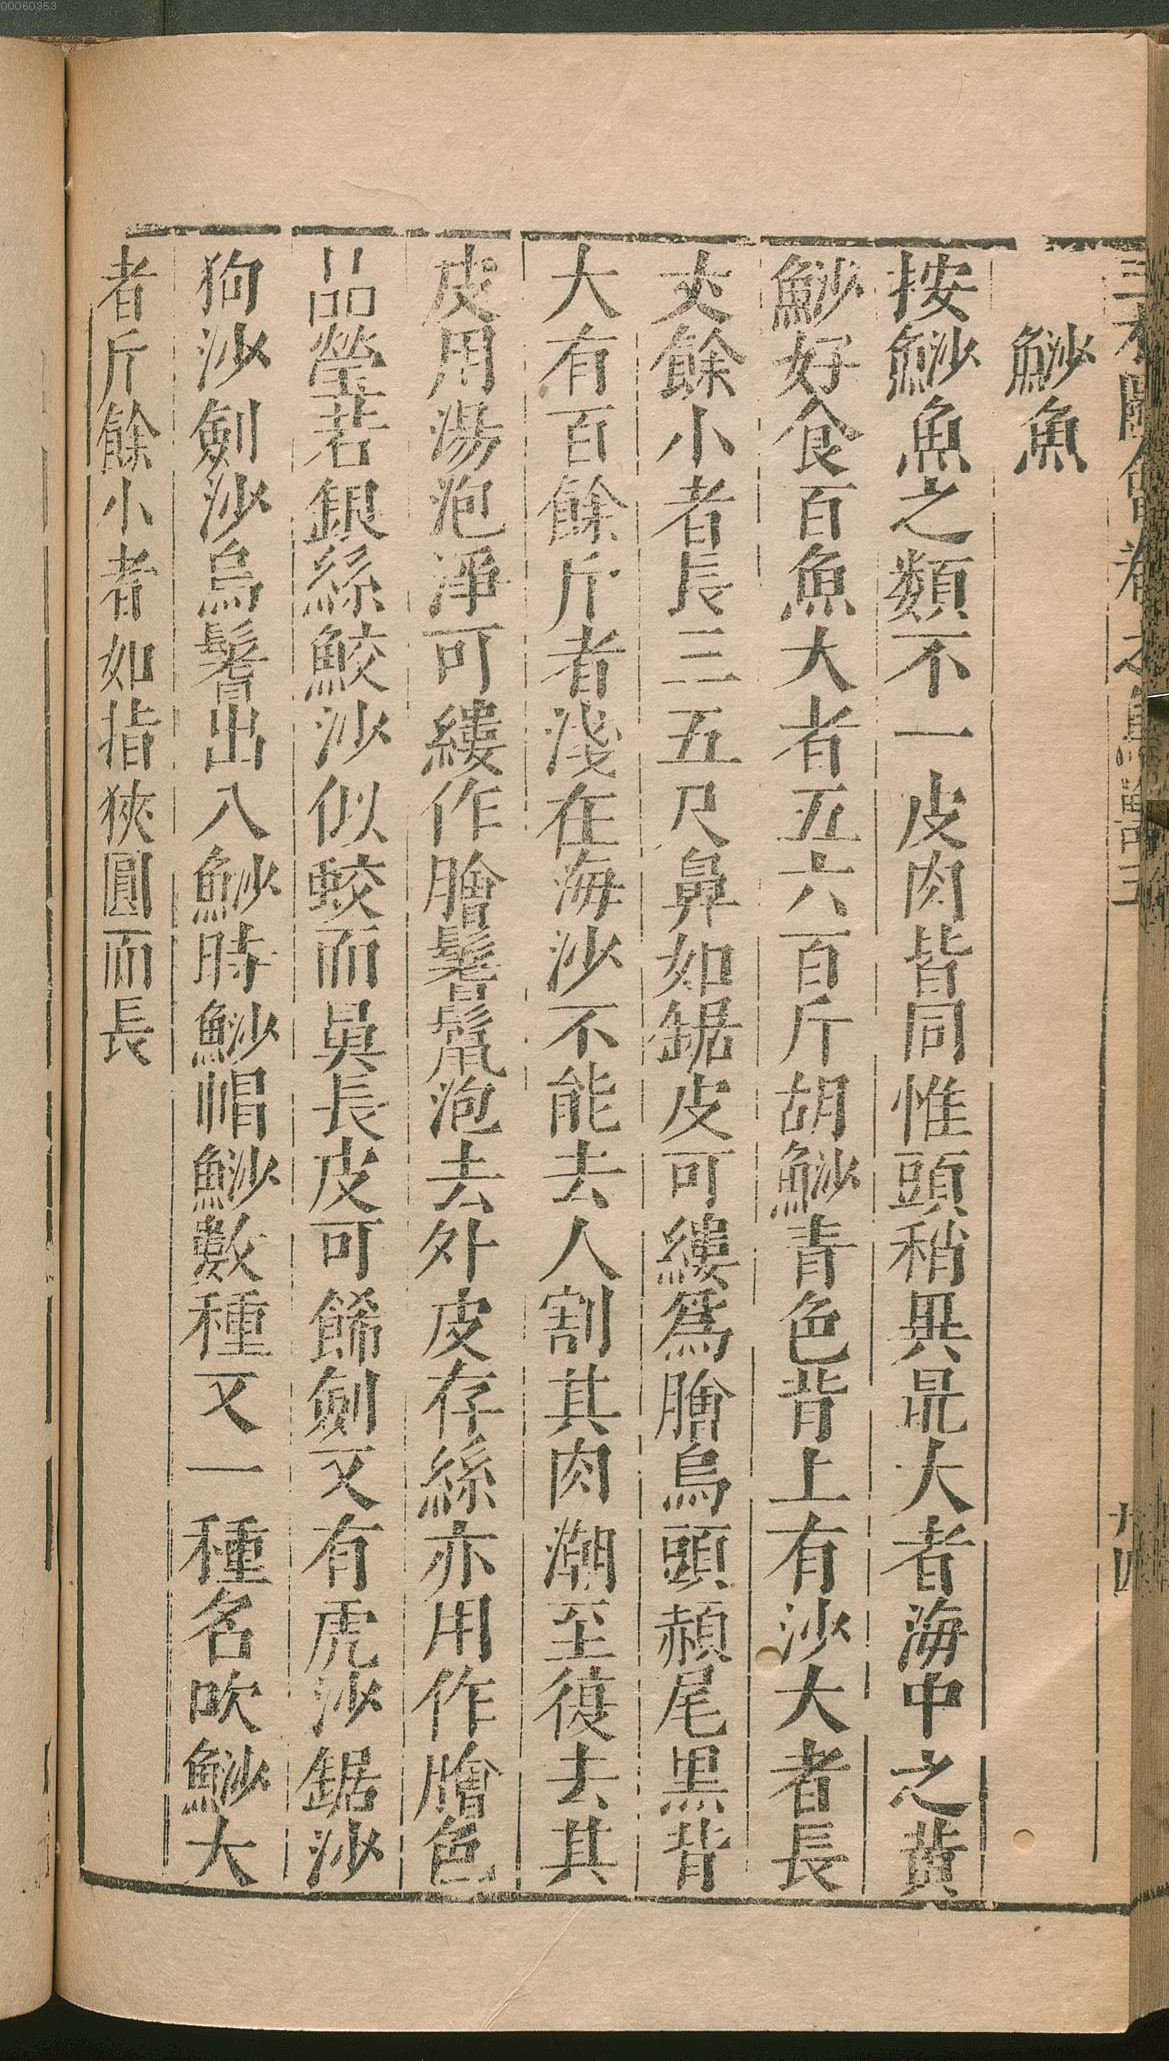 00060353
三才圖會卷之鳥獸五
九四
鯋魚
按鯋魚之類不一皮肉皆同惟頭稍異最大者海中之黃
鯋好食百魚大者五六百斤胡鯋青色背上有沙大者長
丈餘小者長三五尺鼻如鋸皮可縷爲膾烏頭頳尾黑背
大有百餘斤者淺在海沙不能去人割其肉潮至復去其
皮用湯泡淨可縷作膾鬐鬣泡去外皮存絲亦用作膾色
品瑩若銀絲鮫沙似蛟而鼻長皮可餙劍又有虎沙鋸沙
狗沙劍沙烏鬐出八鯋時鯋帽鯋數種又一種名吹鯋大
者斤餘小者如指狹圓而長